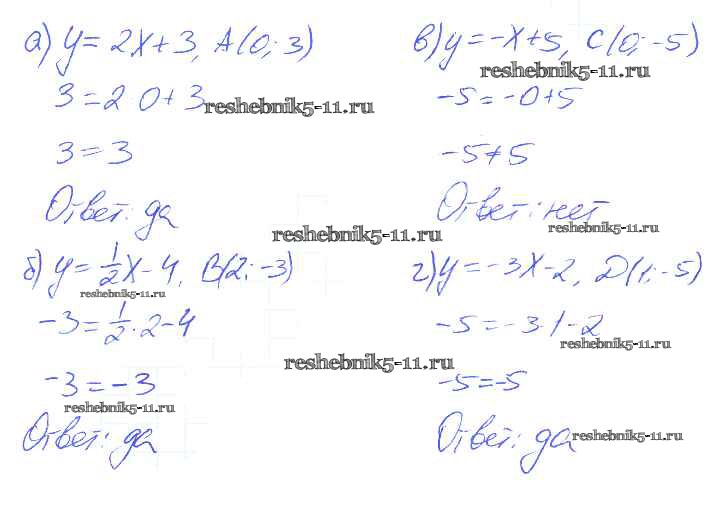 а) y = 2x + 3, A(0; 3)
3 = 2 0 + 3
reshebnik5-11.ru
3 = 3
Ответ: да
в) y = -x + 5, C(0; -5)
reshebnik5-11.ru
-5 = -0 + 5
-5 ≠ 5
Ответ: нет
reshebnik5-11.ru
reshebnik5-11.ru
б) y = 1/2 x - 4, B(2; -3)
reshebnik5-11.ru
-3 = 1/2 · 2 - 4
reshebnik5-11.ru
-3 = -3
reshebnik5-11.ru
Ответ: да
г) y = -3x - 2, D(1; -5)
-5 = -3·1 - 2
reshebnik5-11.ru
-5 = -5
Ответ: да
reshebnik5-11.ru